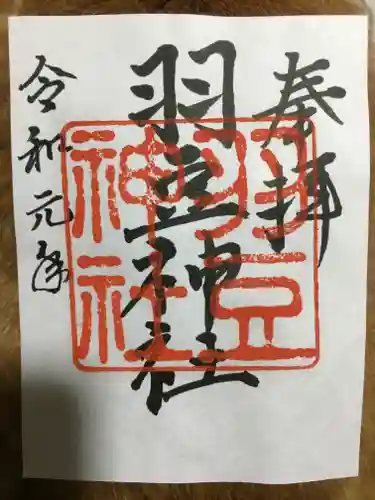 奉拝
羽豆神社
令和元年
羽豆
神社